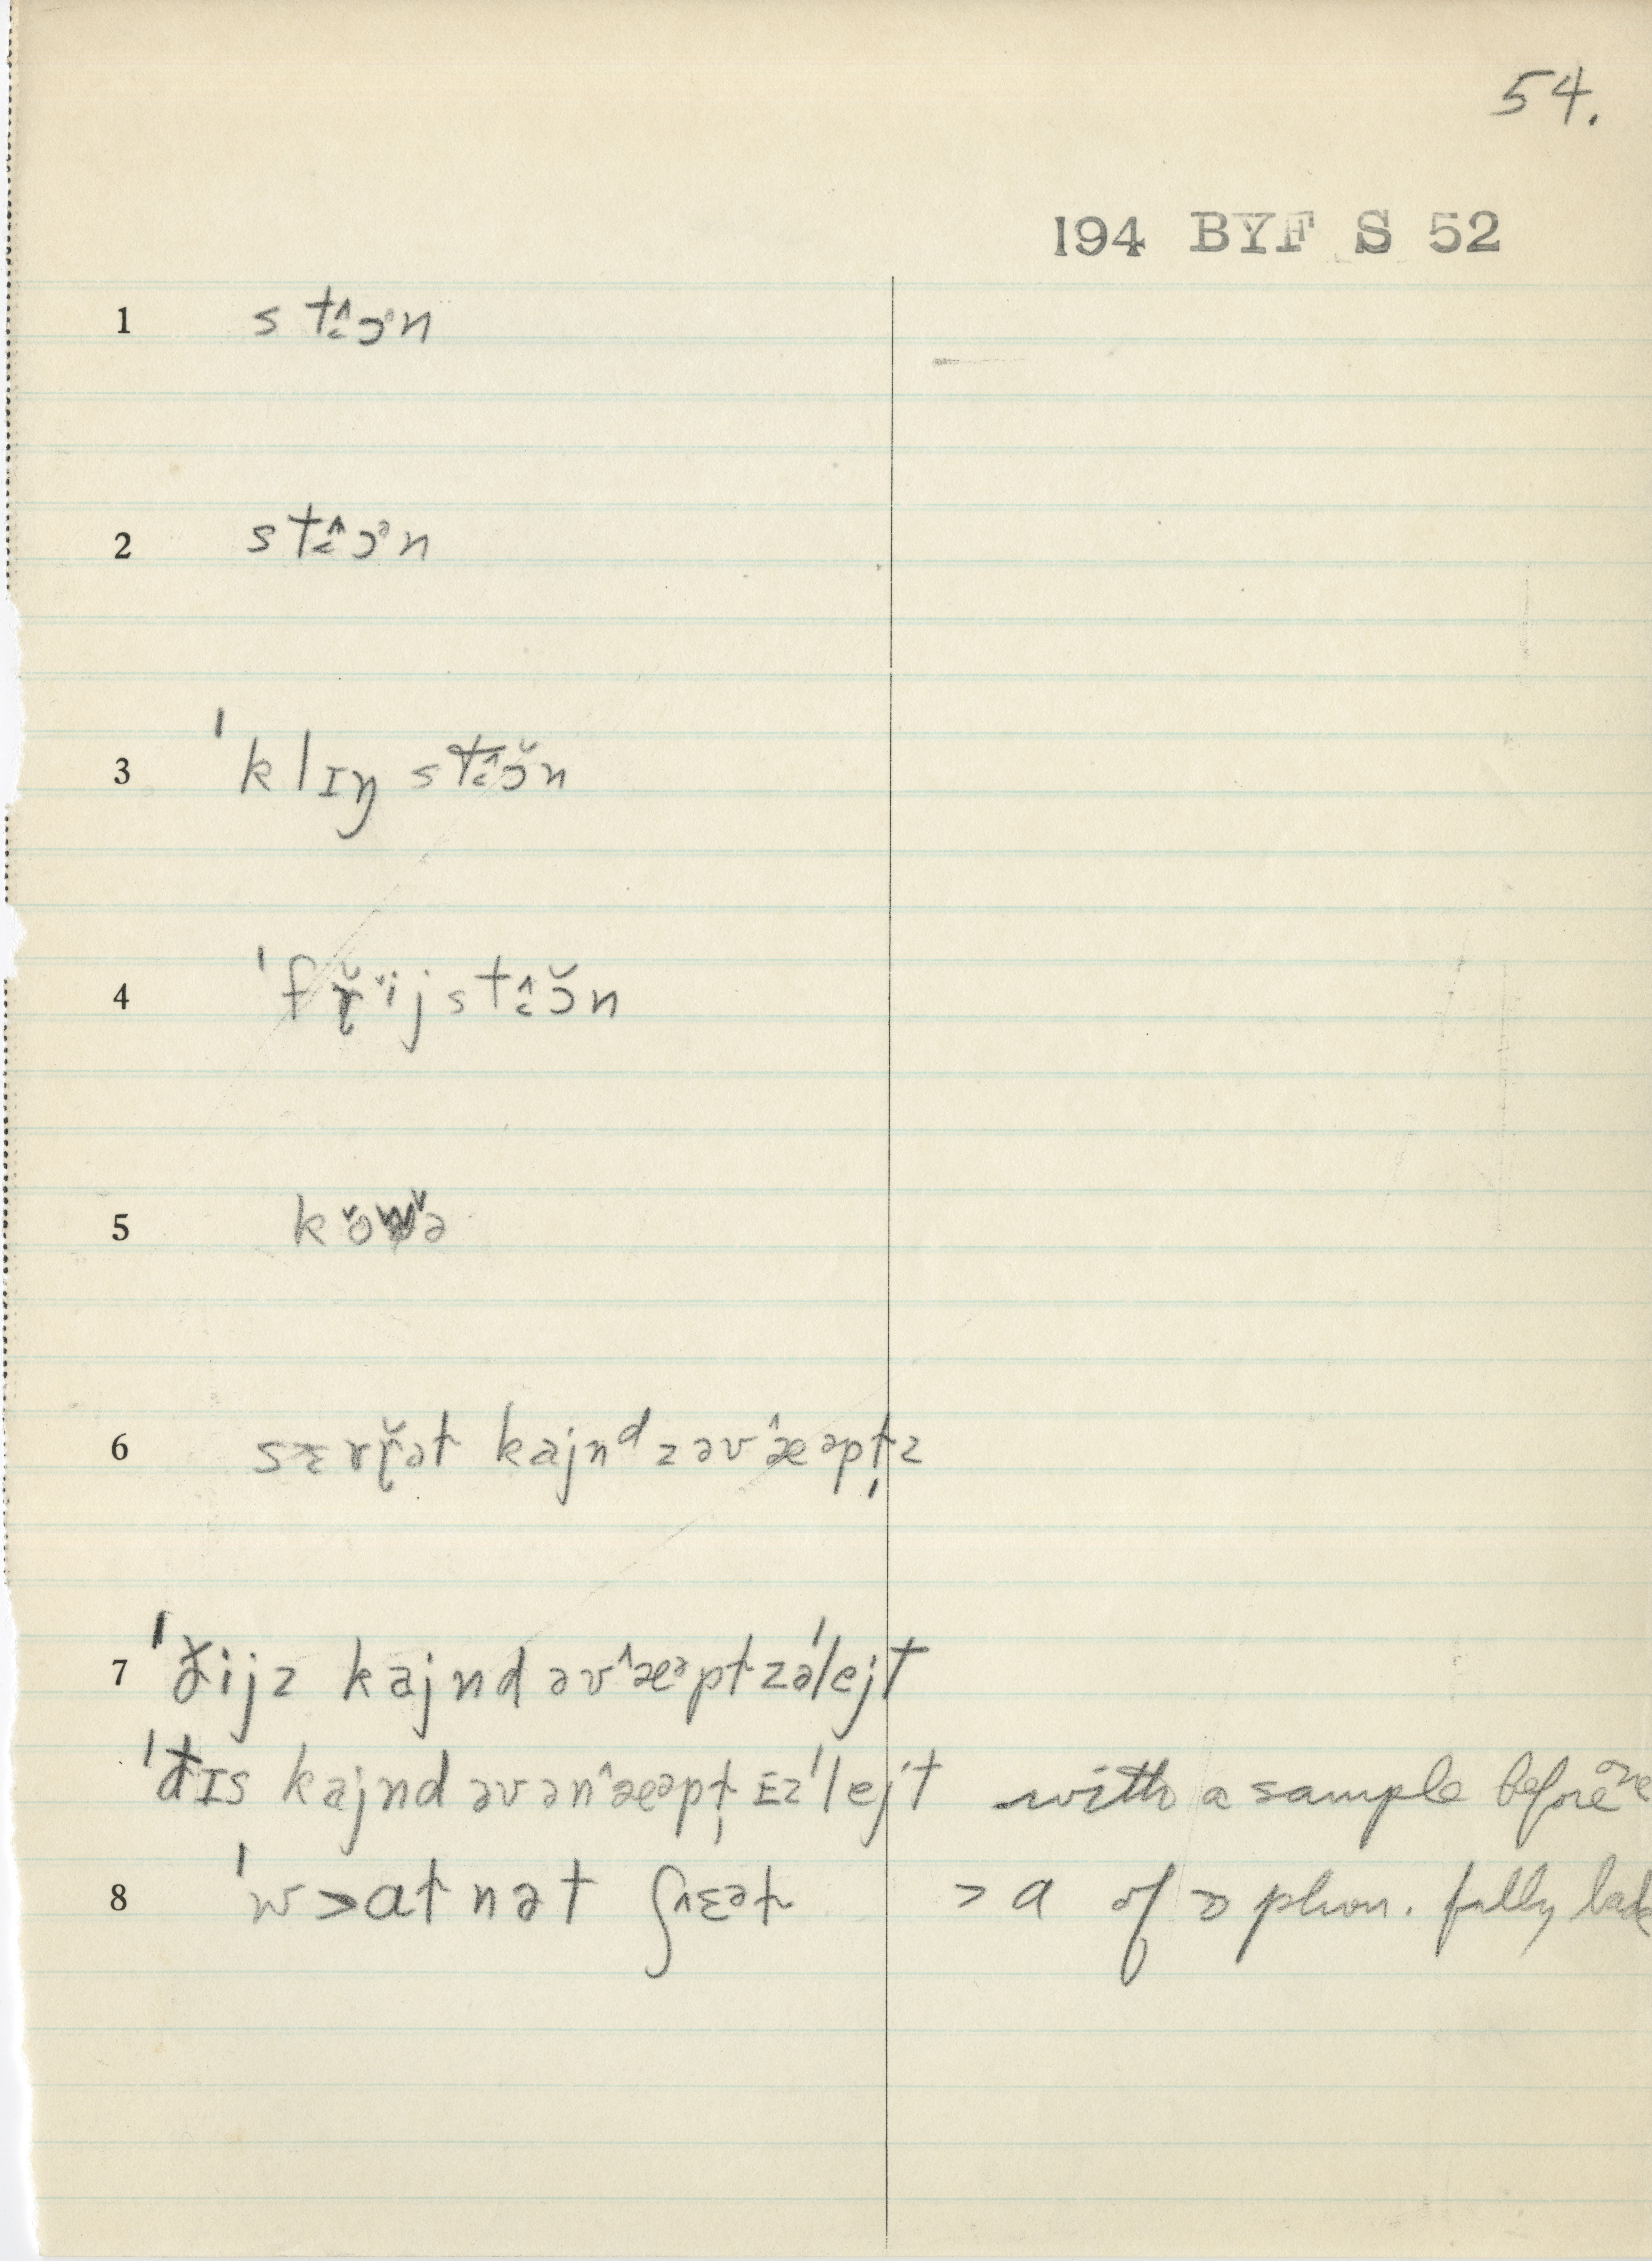 54.
194 BYF S 52
1 st˰̂ɔᵊn
2 st˰̂ɔᵊn
3 ˈklɪŋ st˰̂ɔ̆n
4 ˈfɽ̆ˇijst˰̂ɔ̆n
5 k˅ow˅ə
6 sɛrɽ̆ət kajnᵈzəv^æəpt̩z
7 ˈð̌ijz kajnd əv^æᵊptzəˈlejt
ˈđɪs kajnd əvən^æəpt̩ ɪzˈlejt with a sample before me
8 ˈw>at nət ʃ^ɛət > a of ɔ phon. fully back